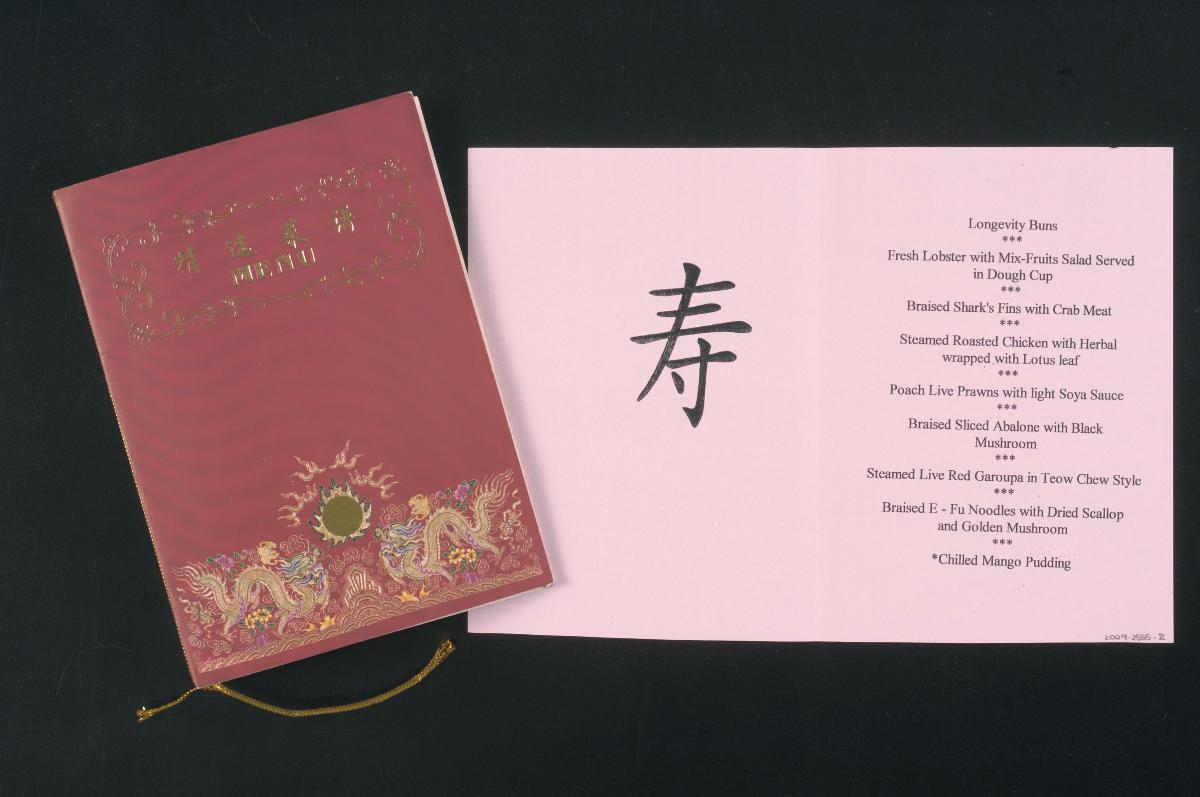 精选菜谱
MENU
寿
Longevity Buns
***
Fresh Lobster with Mix-Fruits Salad Served
in Dough Cup
***
Braised Shark's Fins with Crab Meat
***
Steamed Roasted Chicken with Herbal
wrapped with Lotus leaf
***
Poach Live Prawns with light Soya Sauce
***
Braised Sliced Abalone with Black
Mushroom
***
Steamed Live Red Garoupa in Teow Chew Style
***
Braised E - Fu Noodles with Dried Scallop
and Golden Mushroom
***
*Chilled Mango Pudding
2009-2555-2